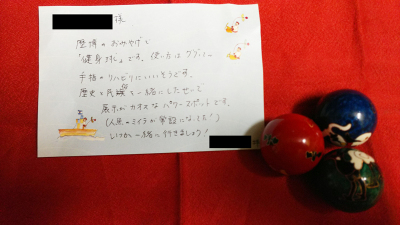 様
歴博のおみやげで
「健身球」です。使い方はググレー
手指のリハビリにいいそうです。
歴史と民族を一緒にしたせいで
展示がカオスなパワースポットです。
(人魚のミイラが
いつか一緒に行きましょう!